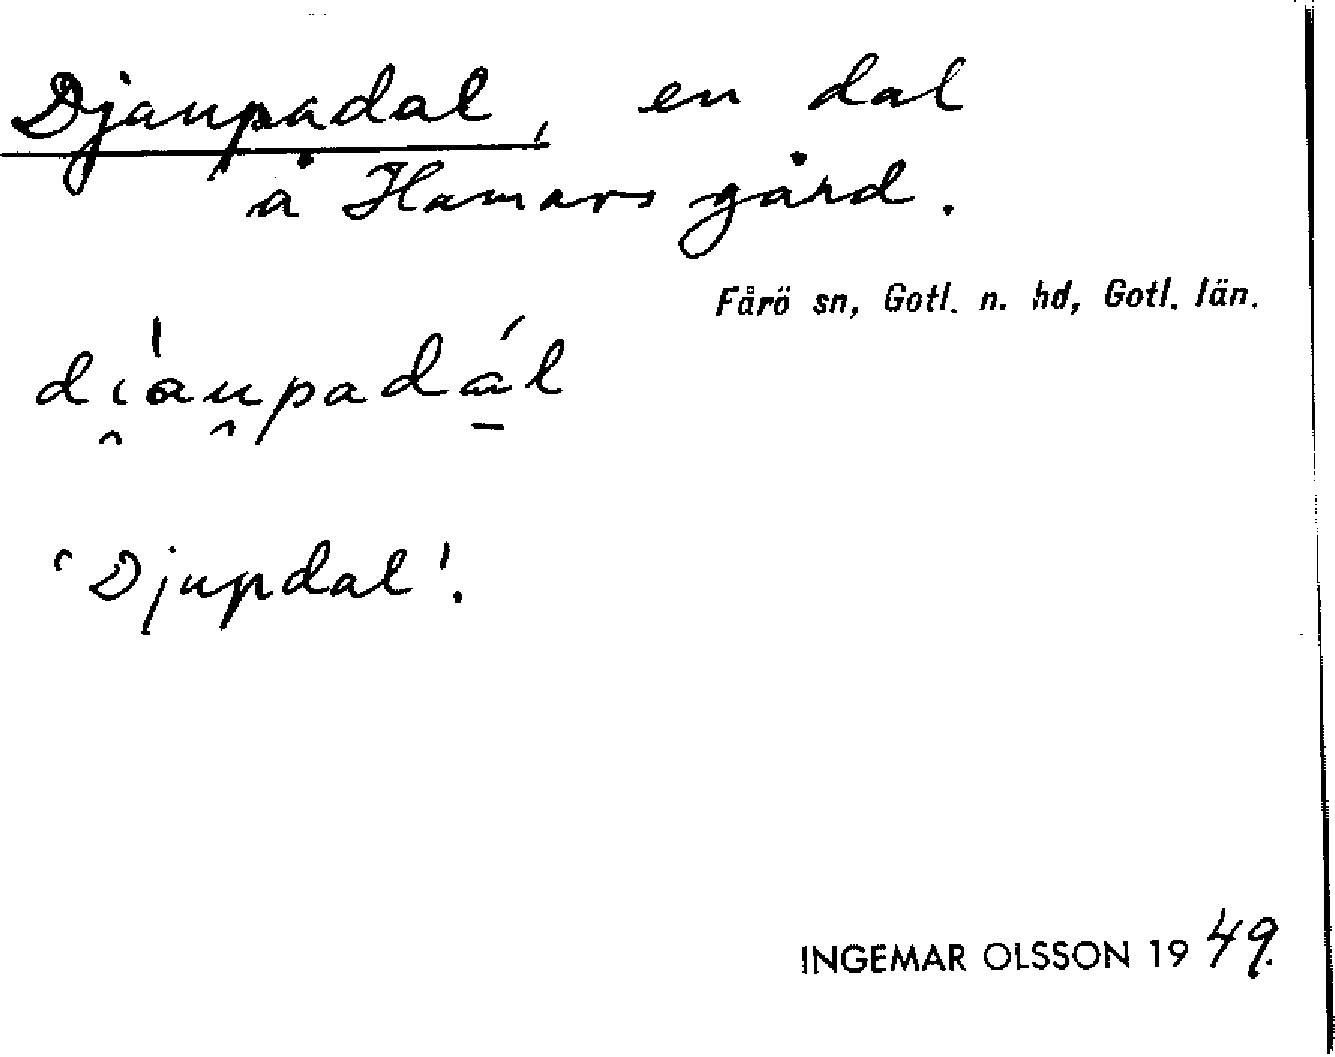 Djaupadal, en dal
å Hamars gård.
Fårö sn, Gotl. n. hd, Gotl. län.
di̯àu̯padá̱l
'Djupdal'.
INGEMAR OLSSON 1949.